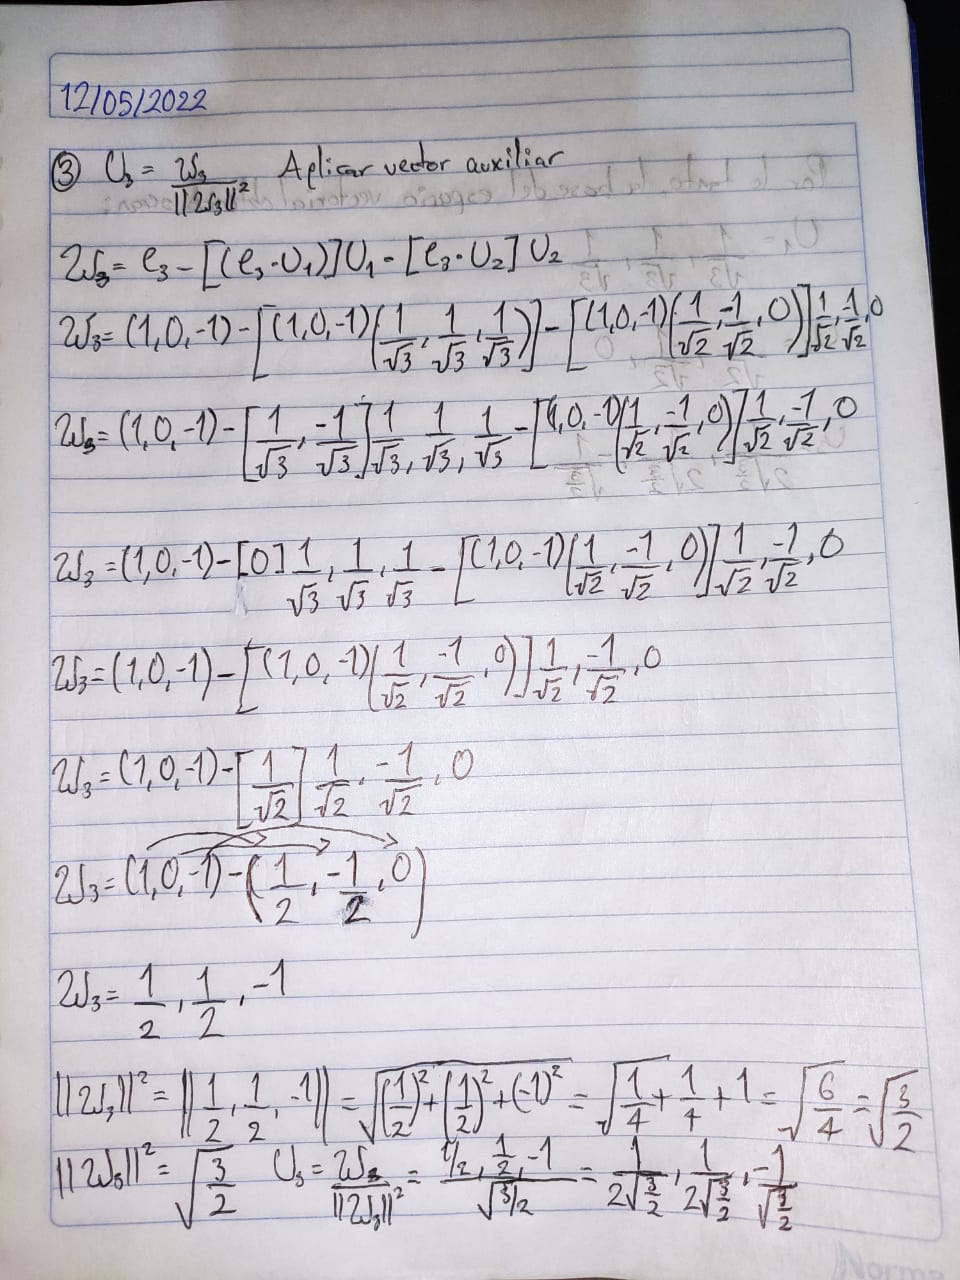 12/05/2022
③ U₃ = W₃/||W₃||² Aplicar vector auxiliar
W₃ = e₃ - [(e₃·U₁)]U₁ - [e₃·U₂]U₂
W₃ = (1,0,-1) - [(1,0,-1)(1/√3, 1/√3, 1/√3)] - [(1,0,-1)(1/√2, -1/√2, 0)] 1/√2, 1/√2, 0
W₃ = (1,0,-1) - [1/√3, -1/√3] 1/√3, 1/√3, 1/√3 - [(1,0,-1)(1/√2, -1/√2, 0)] 1/√2, -1/√2, 0
W₃ = (1,0,-1) - [0] 1/√3, 1/√3, 1/√3 - [(1,0,-1)(1/√2, -1/√2, 0)] 1/√2, -1/√2, 0
W₃ = (1,0,-1) - [(1,0,-1)(1/√2, -1/√2, 0)] 1/√2, -1/√2, 0
W₃ = (1,0,-1) - [1/√2] 1/√2, -1/√2, 0
W₃ = (1,0,-1) - (1/2, -1/2, 0)
W₃ = 1/2, 1/2, -1
||W₃||² = ||1/2, 1/2, -1|| = √((1/2)² + (1/2)² + (-1)²) = √(1/4 + 1/4 + 1) = √(6/4) = √(3/2)
||W₃||² = √(3/2) U₃ = W₃/||W₃||² = (1/2, 1/2, -1)/√(3/2) = 1/(2√(3/2)), 1/(2√(3/2)), -1/√(3/2)
Norma